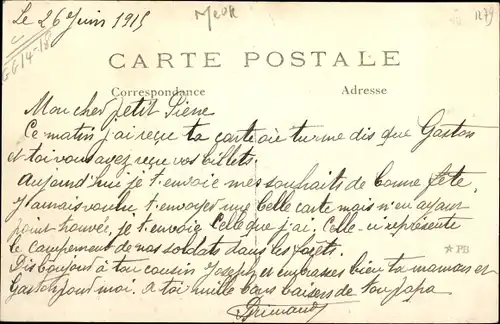 Le 26 Juin 1915
GG 14-18
CARTE POSTALE
Correspondance
Adresse
Mon cher petit Pierre
Ce matin j'ai reçu ta carte où tu me dis que Gaston
et toi vous avez reçu vos billets.
Aujourd'hui je t'envoie mes souhaits de bonne fête,
J'aurais voulu t'envoyer une belle carte mais n'en ayant
point trouvée, je t'envoie celle que j'ai. Celle-ci représente
le campement de nos soldats dans les forêts.
PB
Dis bonjour à ton cousin Joseph et embrasses bien ta maman et
Gaston pour moi. a toi mille bons baisers de ton papa